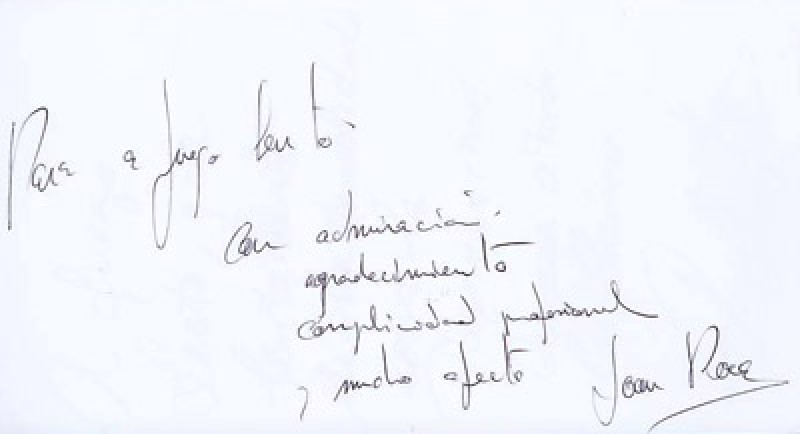 Para a fuego lento.
Con admiración,
agradecimiento
complicidad profesional
y mucho afecto Joan Roca